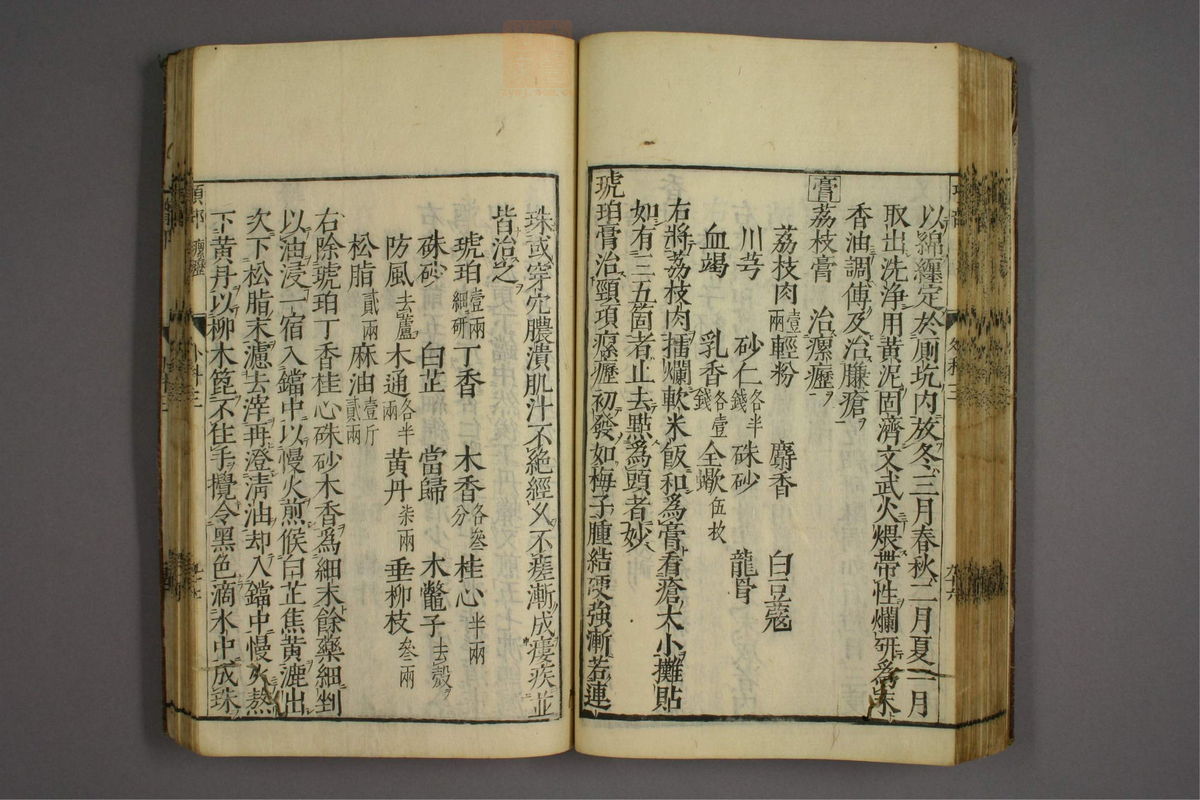 以綿纏定於厠坑内放冬三月春秋二月夏一月
取出洗浄用黄泥固濟文武火煨帶性爛研爲末
香油調傅及治臁瘡
膏 荔枝膏 治瘰癧
荔枝肉壹兩 輕粉 麝香 白豆蔻
川芎 砂仁各半錢 硃砂 龍骨
血竭 乳香各壹錢 全蠍伍枚
右將荔枝肉擂爛軟米飯和爲膏看瘡大小攤貼
如有三五箇者止去點爲頭者妙
琥珀膏治頸項瘰癧初發如梅子腫結硬強漸若連
珠或穿穴膿潰肌汁不絶經久不瘥漸成瘻疾並
皆治之
琥珀壹兩細研 丁香 木香各叁分 桂心半兩
硃砂 白芷 當歸 木鼈子去殼
防風去蘆 木通各半兩 黄丹柒兩 垂柳枝叁兩
松脂貳兩 麻油壹斤貳兩
右除琥珀丁香桂心硃砂木香爲細末餘藥細剉
以油浸一宿入鐺中以慢火煎候白芷焦黄漉出
次下松脂末濾去滓再澄清油却入鐺中慢火熬
下黄丹以柳木篦不住手攪令黑色滴水中成珠
頭部 瘰癧
外科三